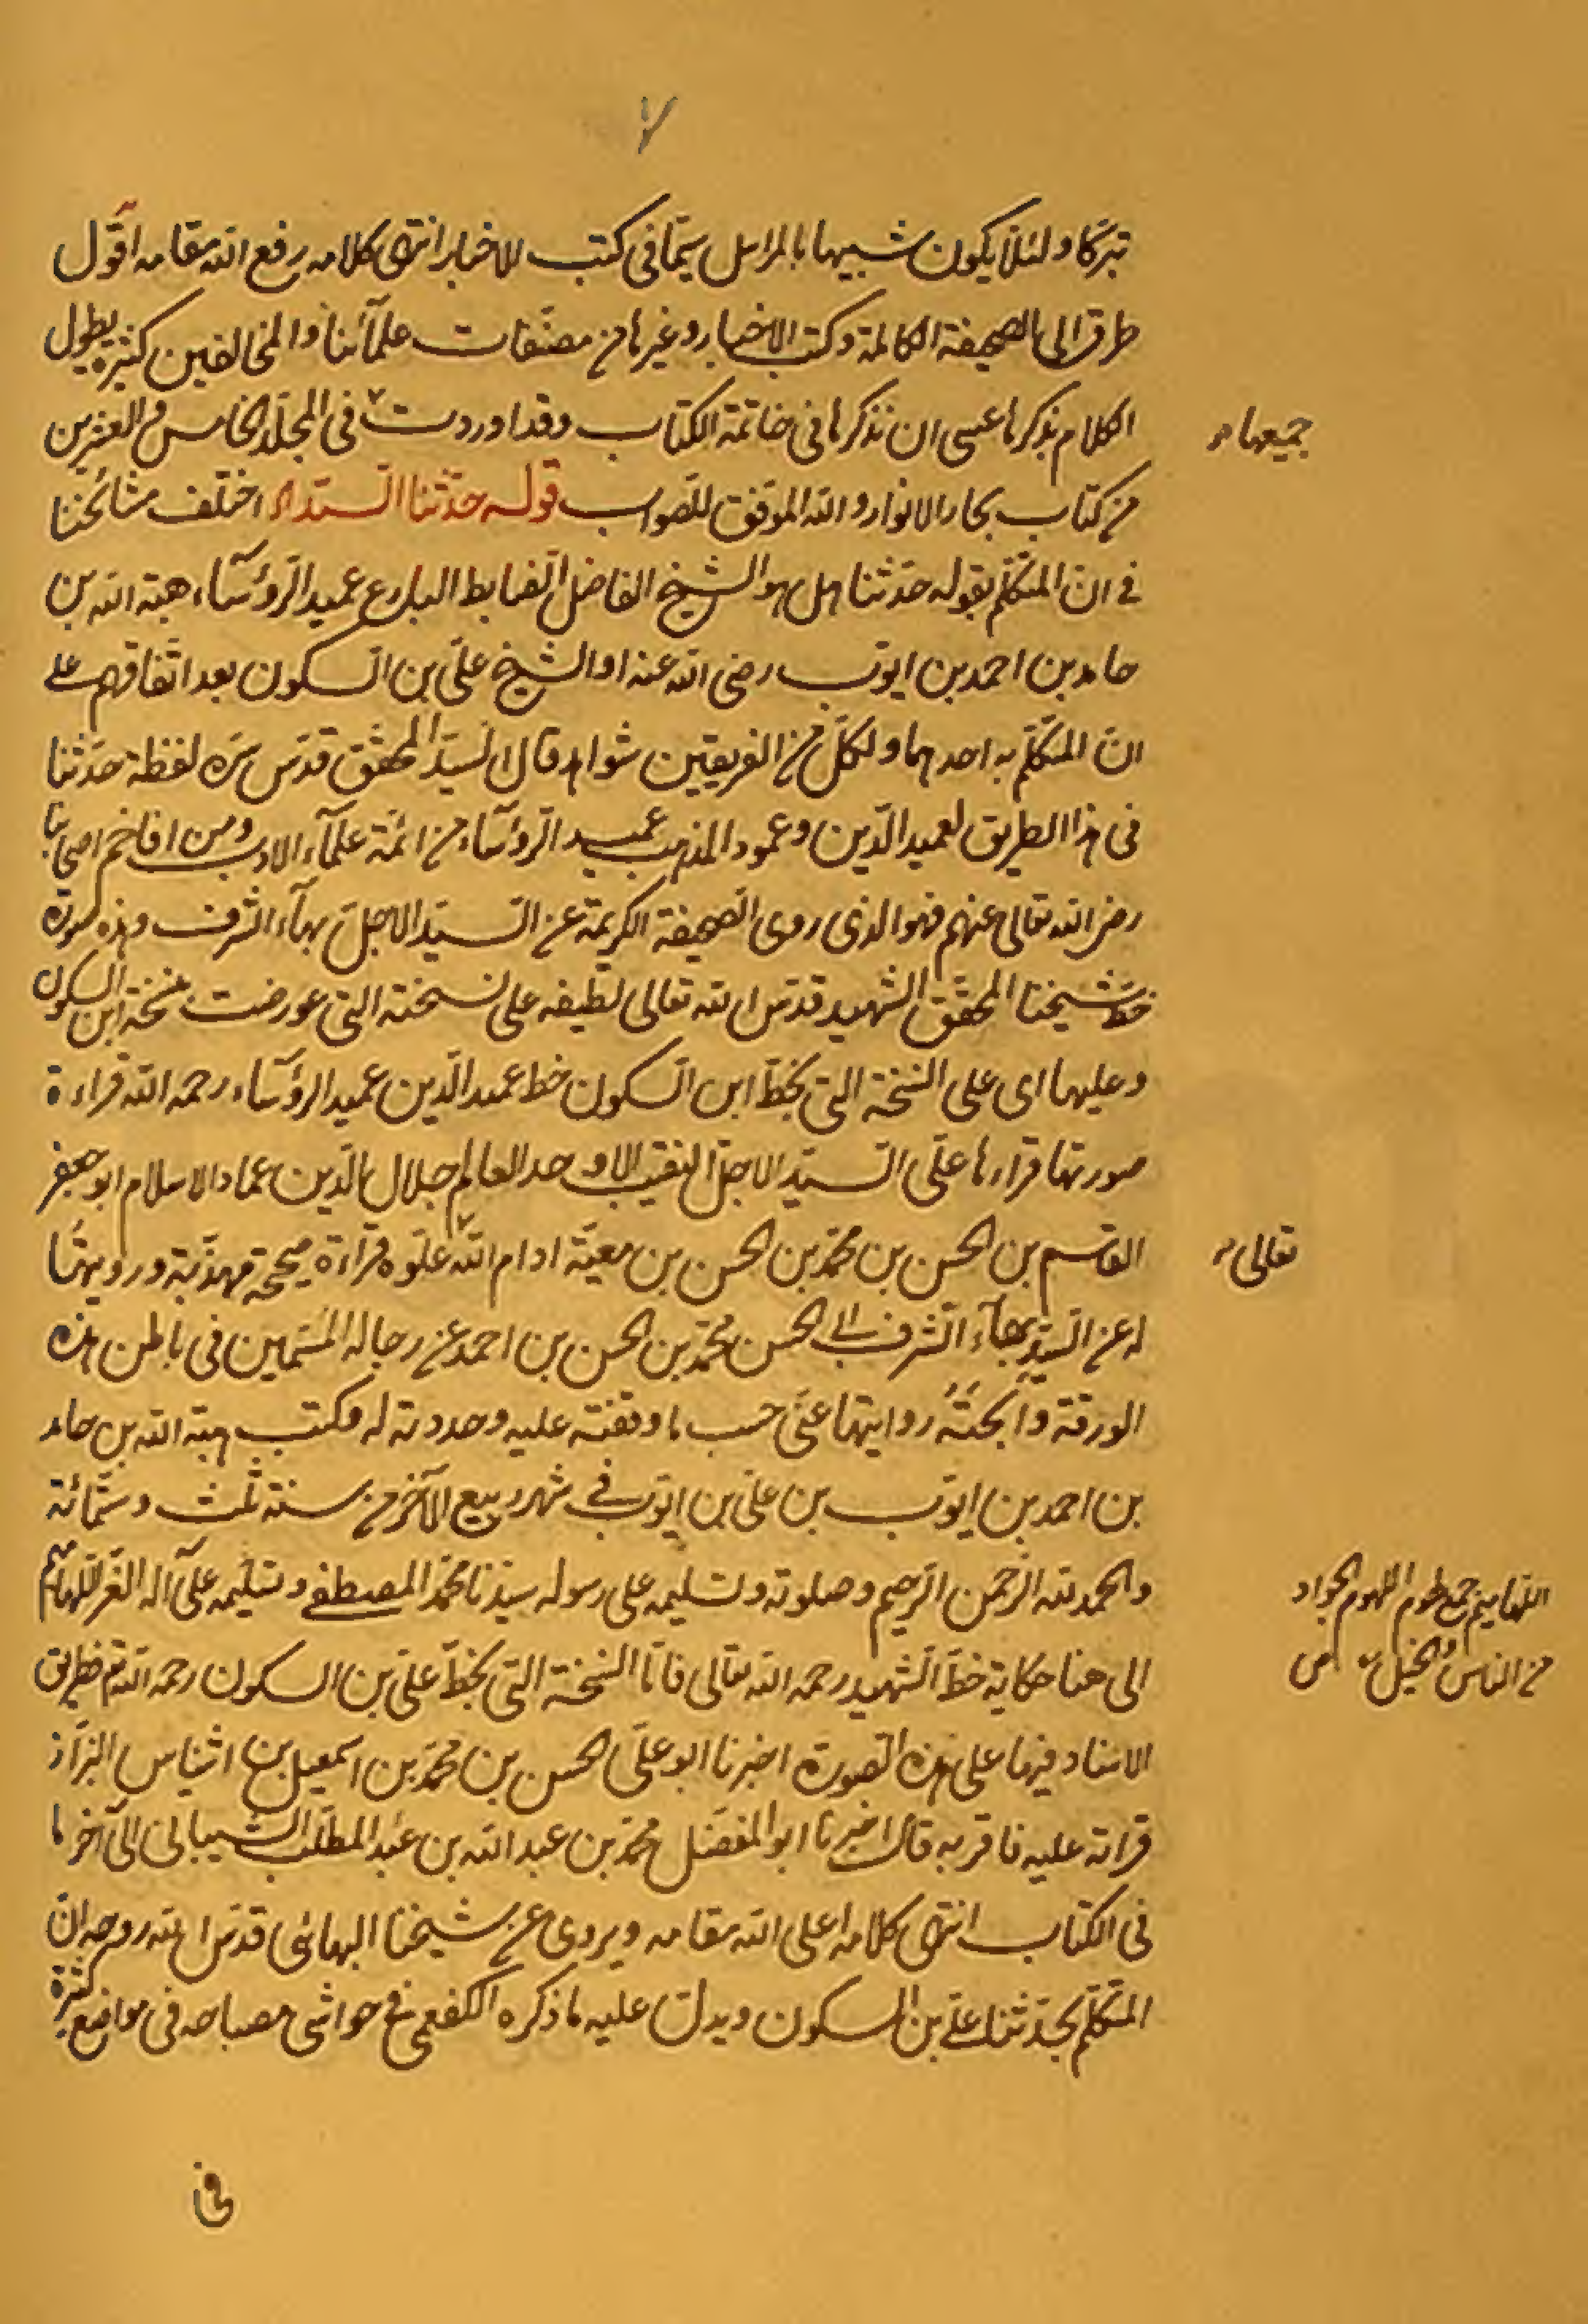 تبركا ولئلا يكون شبيها بالمراسل سيما في كتب الاخبار انتهى كلامه رفع الله مقامه اقول
طرقه الى الصحيفة الكاملة وكتب الاخبار وغيرها من مصنفات علمآئنا والمخالفين كثيرة يطول
الكلام بذكرها عسى ان نذكرها في خاتمة الكتاب وقد اوردت في المجلد الخامس والعشرين
جميعها
من كتاب بحار الانوار والله الموفق للصواب قوله حدثنا السيد اه اختلف مشائخنا
في ان المتكلم بقوله حدثنا هل هو الشيخ الفاضل الضابط البارع عميد الرؤسآء هبة الله بن
حامد بن احمد بن ايوب رضي الله عنه او الشيخ علي بن السكون بعد اتفاقهم على
ان المتكلم به احدهما ولكل من الفريقين شواهد قال السيد المحقق قدس سره لفظة حدثنا
في هذا الطريق لعميد الدين وعمود المذهب عميد الرؤسآء من ائمة علمآء الادب ومن افاخم اصحابنا
رضى الله تعالى عنهم فهو الذي روى الصحيفة الكريمة عن السيد الاجل بهآء الشرف وهذه صورة
خط شيخنا المحقق الشهيد قدس الله تعالى لطيفه على نسخته التي عورضت بنسخة ابن السكون
وعليها اى على النسخة التي بخط ابن السكون خط عميد الدين عميد الرؤسآء رحمه الله قراءة
صورتها قراءها على السيد الاجل النقيب الاوحد العالم جلال الدين عماد الاسلام ابو جعفر
القاسم بن الحسن بن محمد بن الحسن بن معية ادام الله علوه قرآءة صحيحة مهذبة ورويتها
تعالى
له عن السيد بهآء الشرف ابى الحسن محمد بن الحسن بن احمد عن رجاله المسمين في باطن هذه
الورقة وابحته روايتها عني حسب ما وقفته عليه وحددته له وكتب هبة الله بن حامد
بن احمد بن ايوب بن علي بن ايوب في شهر ربيع الآخر من سنة ثلث وستمائة
والحمد لله الرحمن الرحيم وصلوته وتسليمه على رسوله سيدنا محمد المصطفى وتسليمه على آله الغر اللهاميم
اللهاميم جمع لهموم اللهموم الجواد
من الناس والخيل ص
الى هنا حكاية خط الشهيد رحمه الله تعالى فاما النسخة التي بخط علي بن السكون رحمه الله فطريق
الاسناد فيها على هذه الصورة اخبرنا ابو علي الحسن بن محمد بن اسمعيل بن اشناس البزاز
قراته عليه فاقر به قال اخبرنا ابو المفضل محمد بن عبد الله بن عبد المطلب الشيبانى الى آخر ما
في الكتاب انتهى كلامه اعلى الله مقامه ويروى عن شيخنا البهائى قدس الله روحه ان
المتكلم بحدثنا علي بن السكون ويدل عليه ما ذكره الكفعمى في حواشى مصباحه في مواضع كثيرة
في